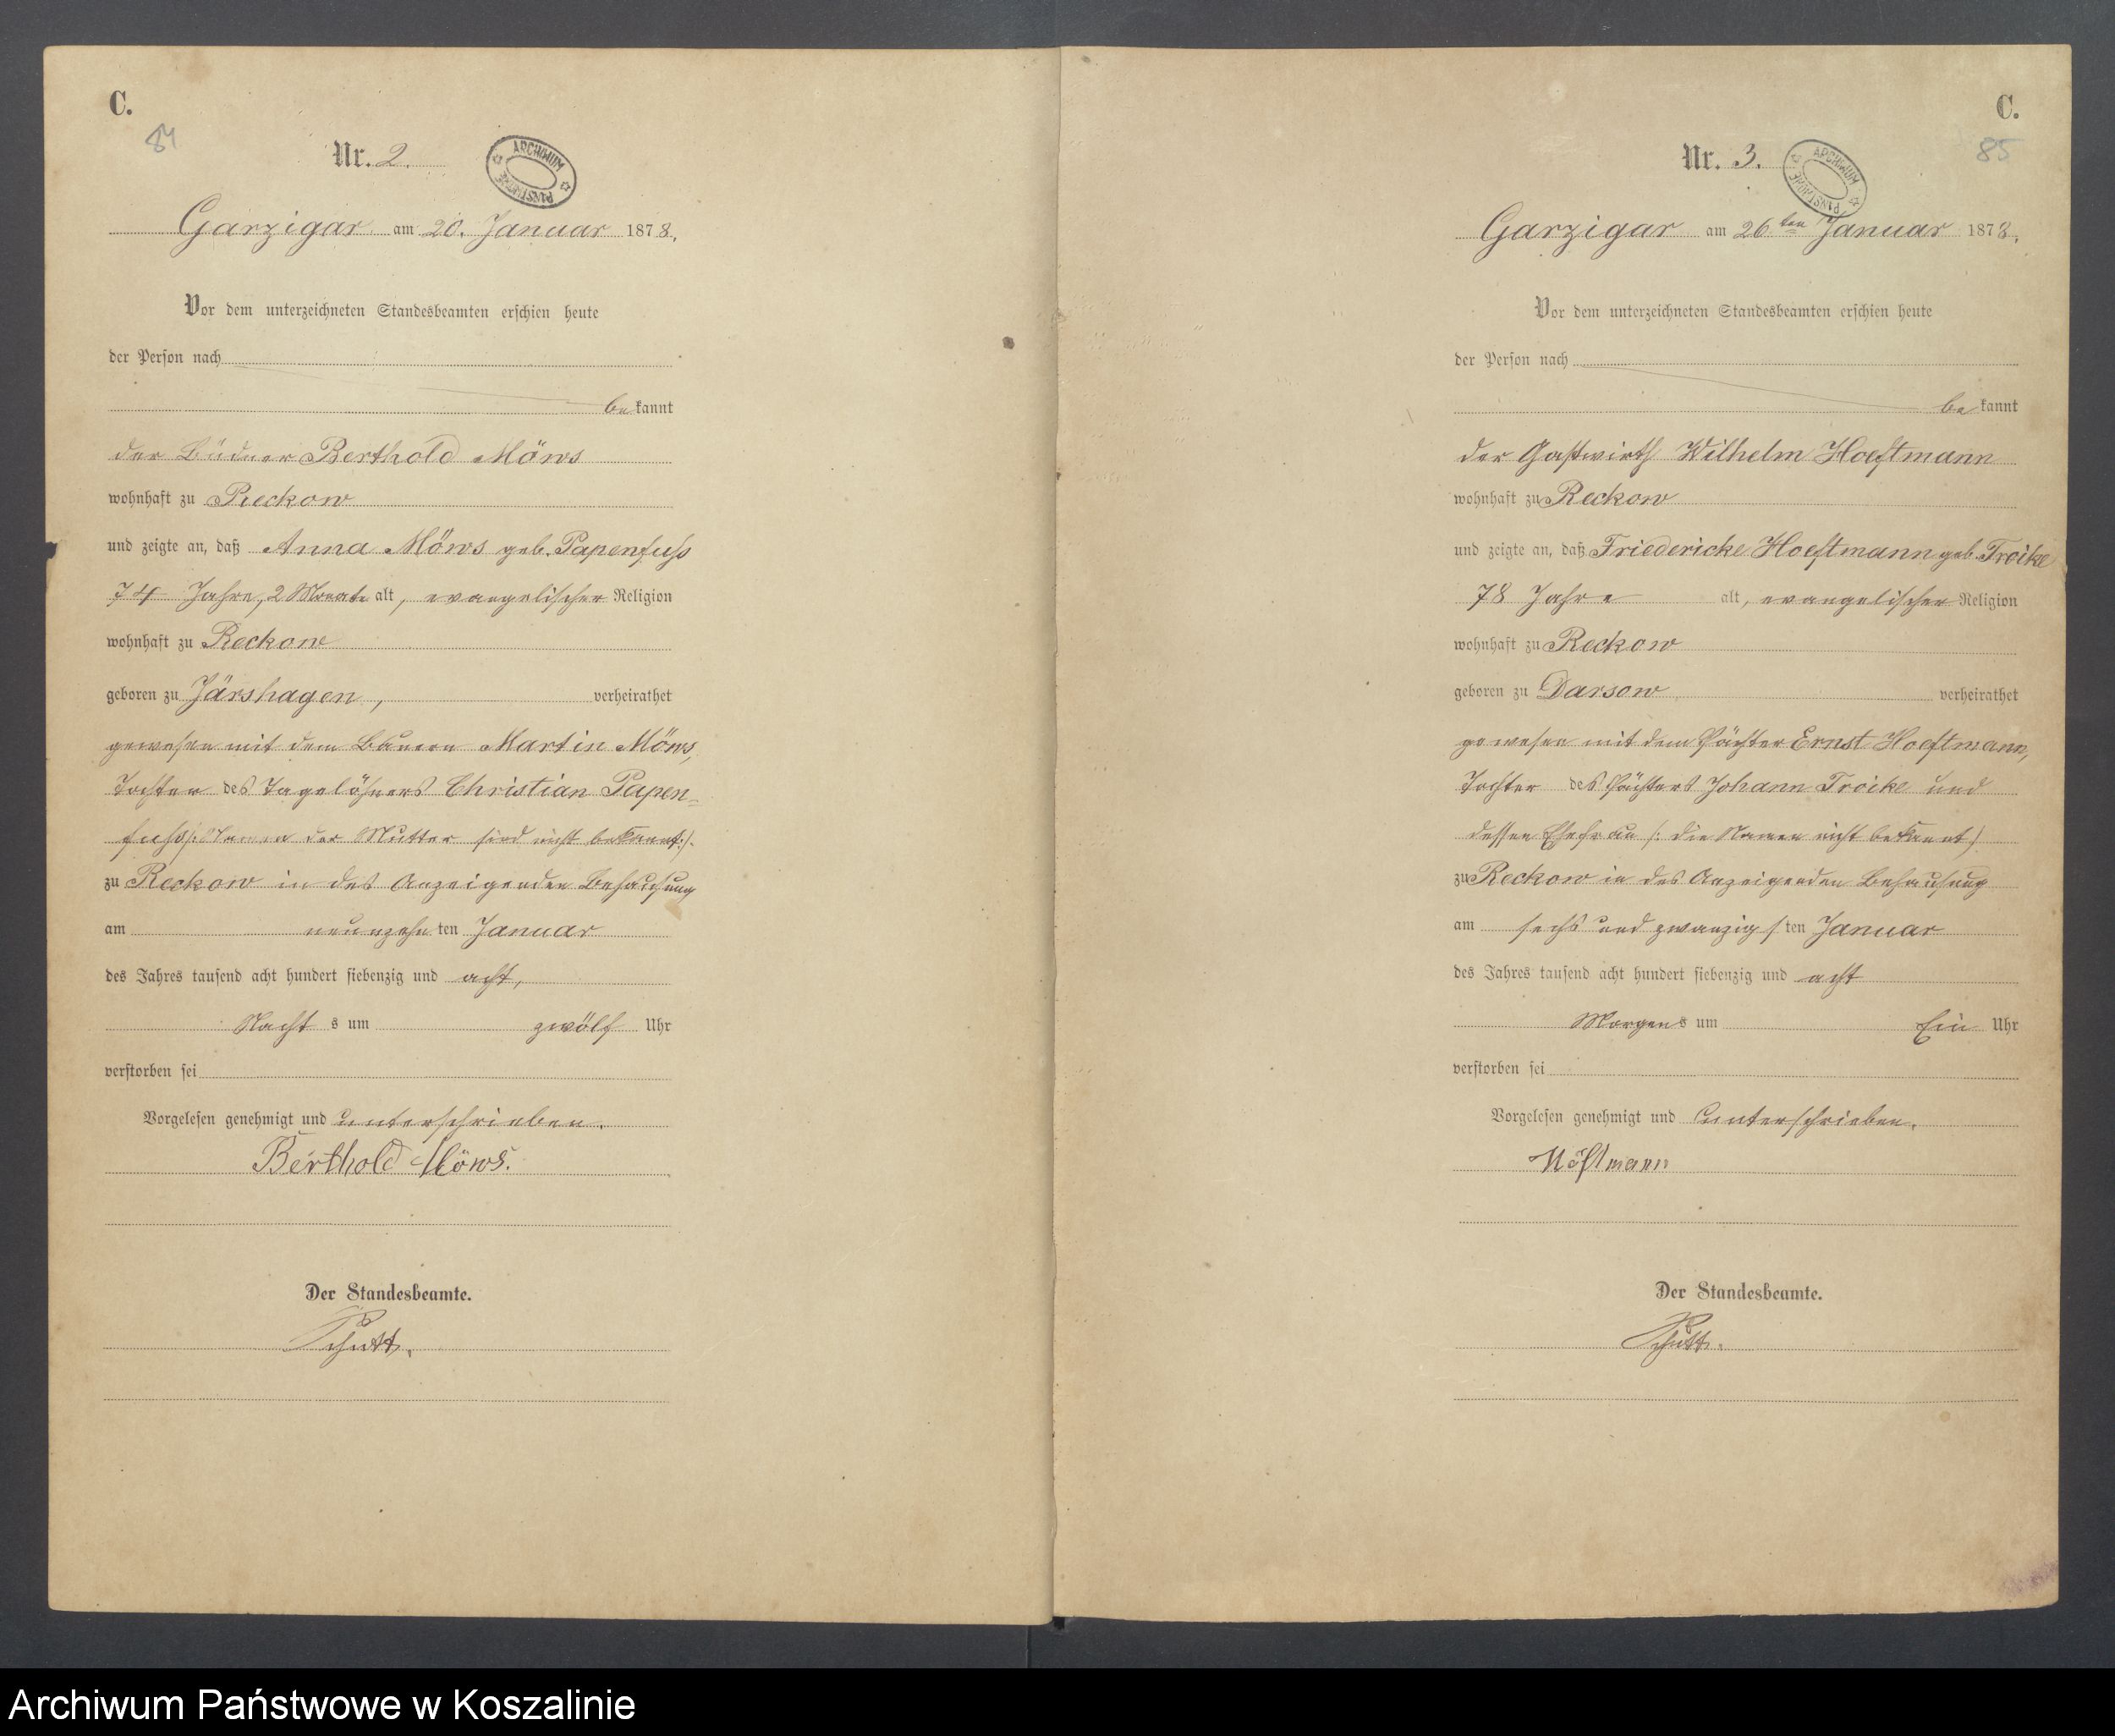 C.
84
Nr. 2.
ARCHIWUM PAŃSTWOWE
Garzigar am 20. Januar 1878.
Vor dem unterzeichneten Standesbeamten erschien heute
der Person nach
bekannt
der Büdner Berthold Möws
wohnhaft zu Reckow
und zeigte an, daß Anna Möws geb. Papenfuss
74 Jahre, 2 Monate alt, evangelischer Religion
wohnhaft zu Reckow
geboren zu Järshagen, verheirathet
gewesen mit dem Bauern Martin Möws,
Tochter des Tagelöhners Christian Papen=
fuss /: Namen der Mutter sind nicht bekannt :/.
zu Reckow in des Anzeigenden Behausung
am neunzehnten Januar
des Jahres tausend acht hundert siebenzig und acht,
Nachts um zwölf Uhr
verstorben sei
Vorgelesen genehmigt und unterschrieben.
Berthold Möws.
Der Standesbeamte.
C.
85
Nr. 3.
ARCHIWUM PAŃSTWOWE
Garzigar am 26ten Januar 1878.
Vor dem unterzeichneten Standesbeamten erschien heute
der Person nach
bekannt
der Gastwirth Wilhelm Hoeftmann
wohnhaft zu Reckow
und zeigte an, daß Friedericke Hoeftmann geb. Troike
78 Jahre alt, evangelischer Religion
wohnhaft zu Reckow
geboren zu Darsow verheirathet
gewesen mit dem Pächter Ernst Hoeftmann,
Tochter des Pächters Johann Troike und
dessen Ehefrau /: die Namen nicht bekannt /
zu Reckow in des Anzeigenden Behausung
am sechs und zwanzigsten Januar
des Jahres tausend acht hundert siebenzig und acht
Morgens um Ein Uhr
verstorben sei
Vorgelesen genehmigt und unterschrieben.
Höftmann
Der Standesbeamte.
Archiwum Państwowe w Koszalinie